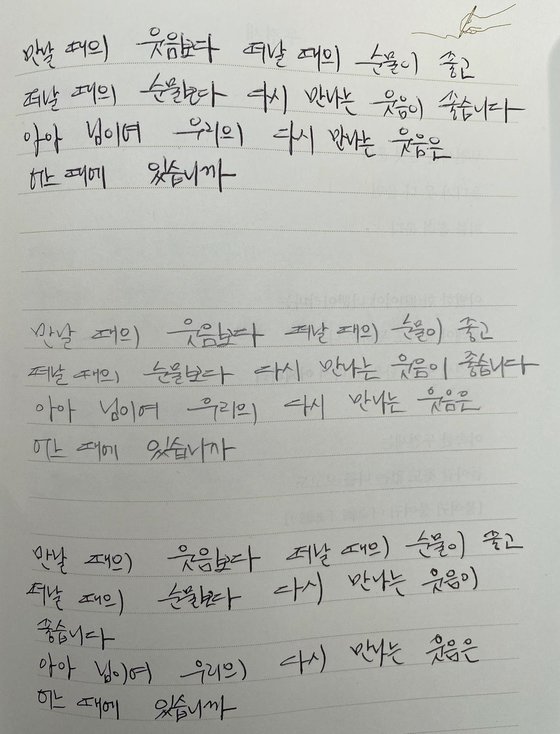 만날 때의 웃음보다 떠날 때의 눈물이 좋고
떠날 때의 눈물보다 다시 만나는 웃음이 좋습니다
아아 님이여 우리의 다시 만나는 웃음은
어느 때에 있습니까
만날 때의 웃음보다 떠날 때의 눈물이 좋고
떠날 때의 눈물보다 다시 만나는 웃음이 좋습니다
아아 님이여 우리의 다시 만나는 웃음은
어느 때에 있습니까
만날 때의 웃음보다 떠날 때의 눈물이 좋고
떠날 때의 눈물보다 다시 만나는 웃음이
좋습니다
아아 님이여 우리의 다시 만나는 웃음은
어느 때에 있습니까